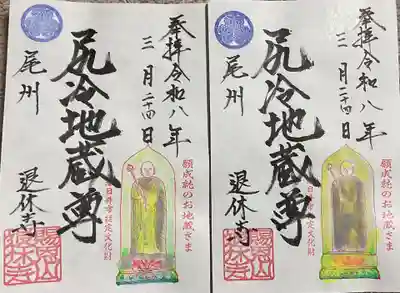 奉拝令和八年
三月二十四日
尻冷地蔵尊
尾州
退休寺
願成就のお地蔵さま
日井市指定文化財
奉拝令和八年
三月二十四日
尻冷地蔵尊
尾州
退休寺
願成就のお地蔵さま
日井市指定文化財